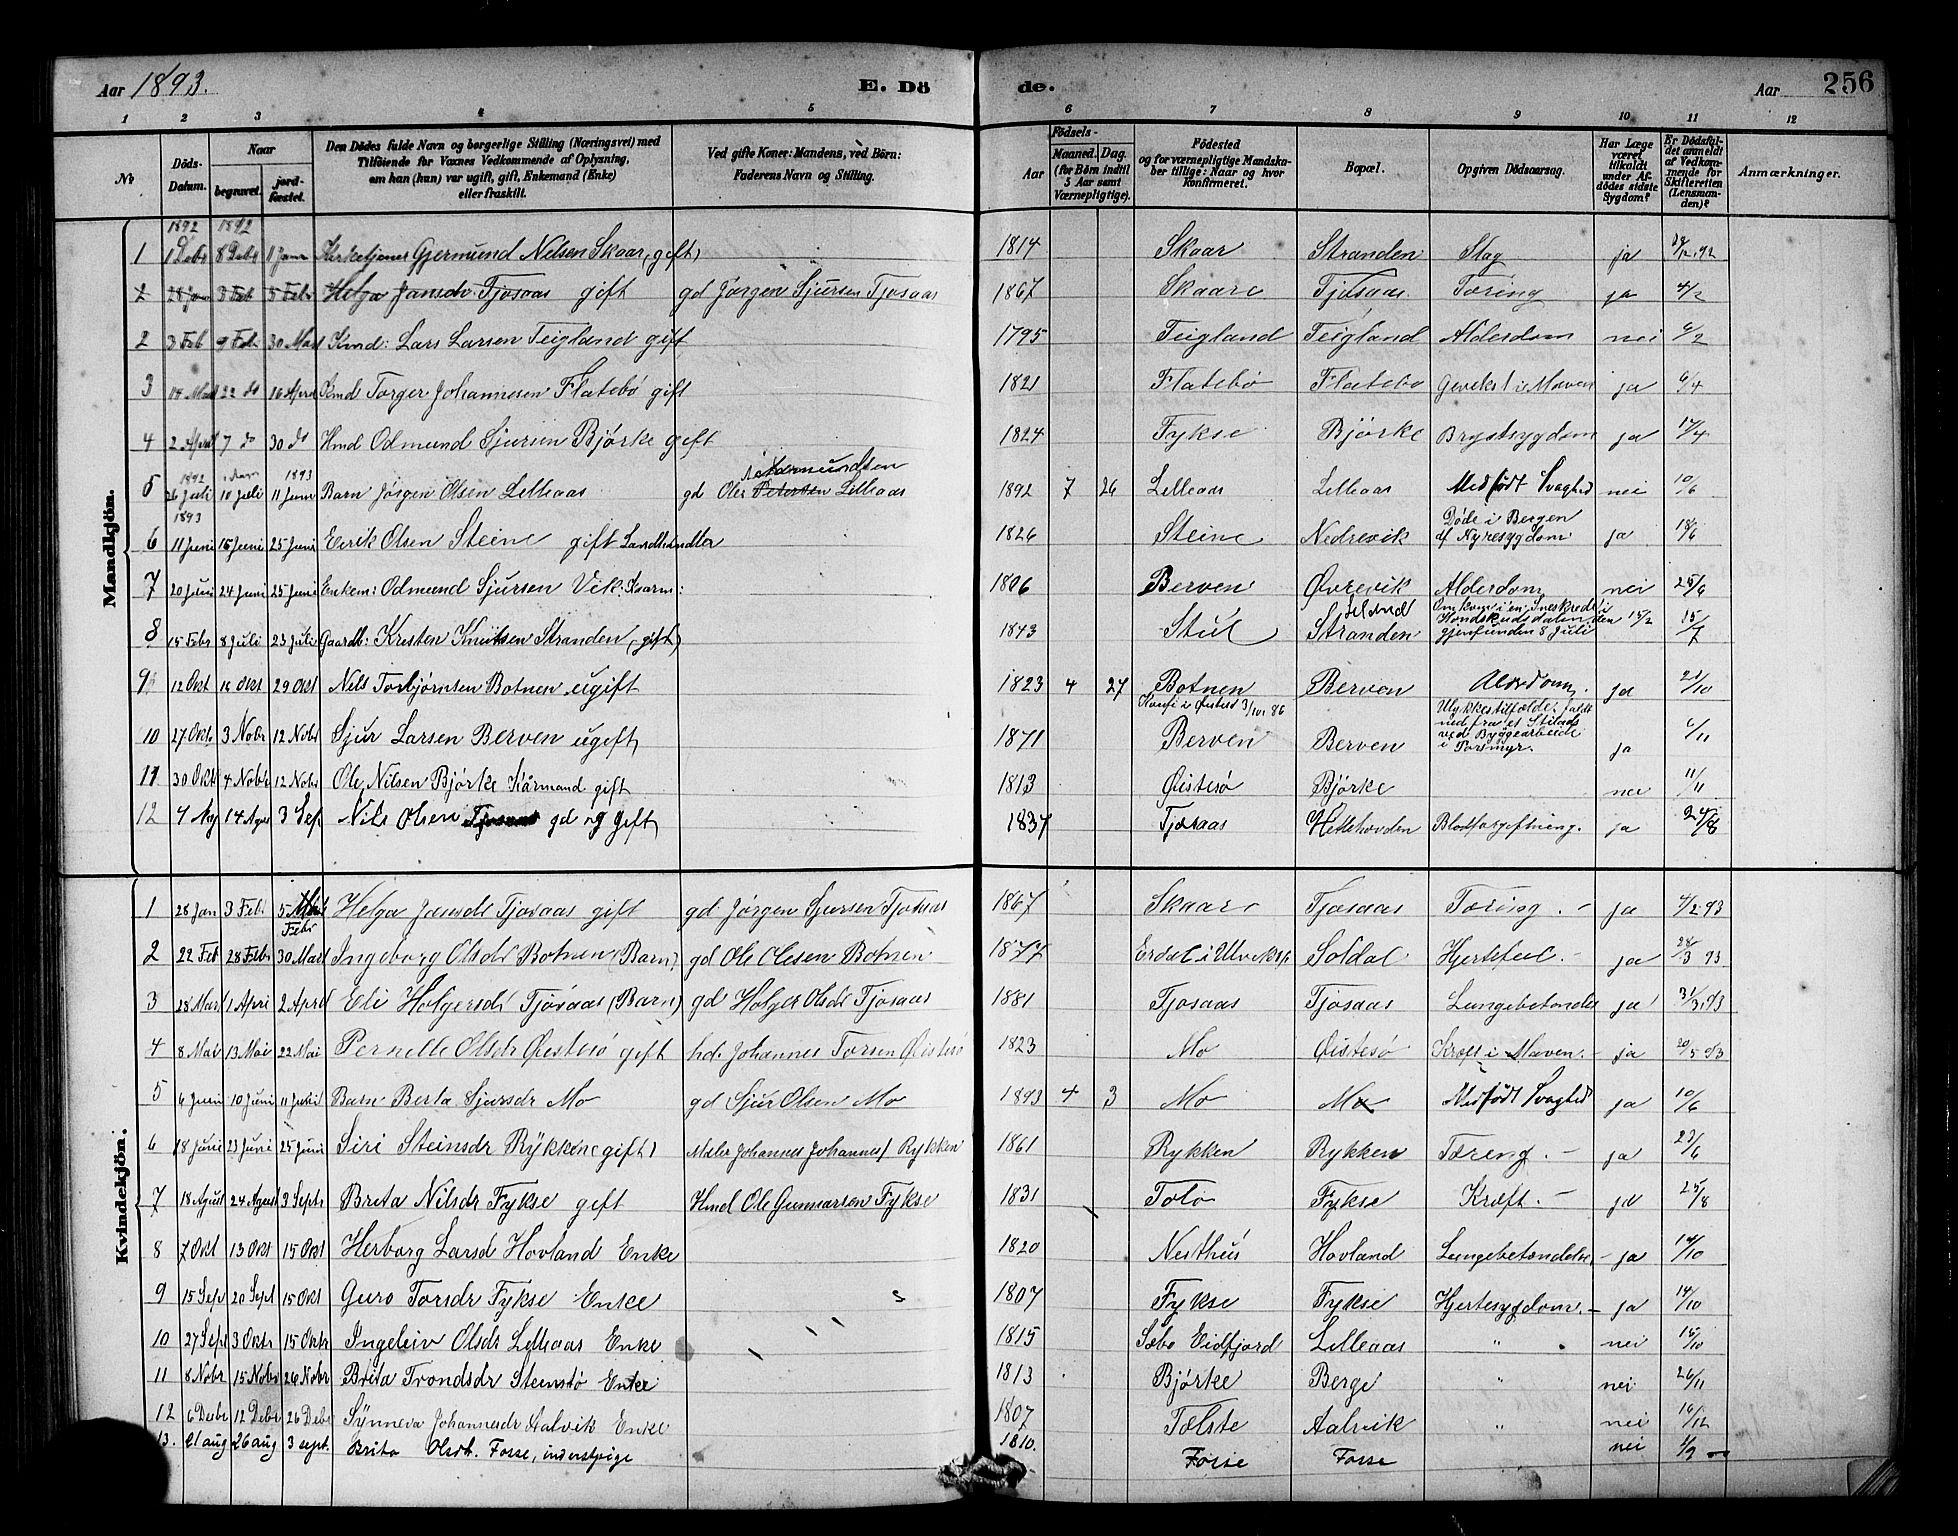 Aar 1893. E. Dö de. Aar 256
1 2 3 4 5 6 7 8 9 10 11 12
No. Döds-Datum. Naar begravet. jordfæstet. Den Dödes fulde Navn og borgerlige Stilling (Næringsvei) med Tilföiende for Voxnes Vedkommende af Oplysning, om han (hun) var ugift, gift, Enkemand (Enke) eller fraskilt. Ved gifte Koner: Mandens, ved Börn: Faderens Navn og Stilling. Födsels- Aar Maaned. Dag. (for Börn indtil 5 Aar samt Værnepligtige). Födested og for værnepligtige Mandskaber tillige: Naar og hvor Konfirmeret. Bopæl. Opgiven Dödsaarsag. Har Læge været tilkaldt under Afdödes sidste Sygdom? Er Dödsfaldet anmeldt af Vedkommende for Skifteretten (Lensmanden)? Anmærkninger.
Mandkjön.
1892 1892
1 1 Debr 8 Debr 1 Janr Kirketjener Gjermund Nelsen Skaar, gift) 1814 Skaar Stranden Slag ja 12.92
2 28 Jan 3 Feb 5 Febr Helga Jansdr Tjosaas gift gd Jörgen Sjursen Tjosaas 1867 Skaare Tjosaas Tæring ja 4/2
2 3 Feb 9 Feb 30 Mars Kmd: Lars Larsen Teigland gift 1795 Teigland Teigland Alderdom nei 6/2
3 14 Mars 22 do 16 Apr Kmd Torger Johannesen Flatebö gift 1821 Flatebö Flatebö Gevekst i Maven ja 6/4
4 2 April 7 do 30 do Hmd Odmund Sjursen Björke gift 1824 Fykse Björke Brystsygdom ja 17/4
1892 1893 Aamundsen
5 26 Juli 10 Juli 11 Juni Barn Jörgen Olsen Lilleaas gd Ole Petersen Lilleaas 1892 7 26 Lilleaas Lilleaas Medfödt Svaghed nei 10/6
1893
6 11 Juni 15 Juni 25 Juni Eirik Olsen Steine gift Landhandler 1826 Steine Nedrevik Döde i Bergen af Nyresygdom ja 18/6
7 20 Juni 24 Juni 25 Juni Enkem: Odmund Sjursen Vik: Kaarm: 1806 Berven Øvrevik Alderdom nei 25/6
8 15 Febr 8 Juli 23 Juli Gaardb: Kresten Knutsen Stranden (gift) 1843 Stul Stranden Omkom i en Sneskred i den 15/2 gjenfunden 8 Juli 15/7
9 12 Okt 18 Okt 29 Okt Nils Torbjörnsen Botnen ugift 1823 4 27 Botnen Berven Alderdom. ja 21/10
10 27 Okt 3 Nobr 12 Nobr Sjur Larsen Berven ugift 1871 Konf i Øistesö 3/10. 86 Berven Berven Ulykkestilfælde; faldt ned fra et Stilads ved Byggearbeide i ja 6/11
11 30 Okt 4 Nobr 12 Nobr Ole Nilsen Björke Kårmand gift 1813 Øistesö Björke nei 11/11
12 7 Ag 14 Agus 3 Sep Nils Olsen Tjosaas gd og gift 1837 Tjosaas Hettehovden Blodforgiftning. ja 24/8
Kvindekjön.
1 28 Jan 3 Feb 5 Mars Febr Helga Jansdr Tjosaas gift gd Jörgen Sjursen Tjosaas 1867 Skaare Tjosaas Tæring. - ja 4/2 93
2 22 Feb 28 Febr 30 Mars Ingeborg Olsdr Botnen (Barn) gd Ole Olesen Botnen 1877 Erdal i Ulvik Soldal Hjertefeil. - ja 28/3 93
3 28 Mars 1 April 2 April Eli Holgersdr Tjösaas (Barn) gd Holger Olsdr Tjosaas 1881 Tjosaas Tjosaas Lungebetændelse ja 31/3.93
4 8 Mai 13 Mai 22 Mai Pernelle Olsdr Øistesö gift hd. Johannes Torsen Øistesö 1823 Mo Øistesö Kræft i Maven. - ja 20/5 93
5 6 Juni 10 Juni 11 Juni Barn Berta Sjursdr Mo gd Sjur Olsen Mo 1893 4 3 Mo Mo Medfödt Svaghed ja 10/6
6 18 Juni 23 Juni 25 Juni Siri Steinsdr Rykken (gift) Maler Johannes Johannes Rykken 1861 Rykken Rykken Tæring. - ja 23/6
7 18 Agust 24 Agust 3 Septr Brita Nilsdr Fykse gift Hmd Ole Gunnarsen Fykse 1831 Tolo Fykse Kræft. - ja 25/8
8 7 Okt 13 Okt 15 Okt Herborg Larsd Hovland Enke 1820 Nesthus Hovland Lungebetændelse - ja 14/10
9 15 Sept 20 Sept 15 Okt Guro Torsdr Fykse Enke 1807 Fykse Fykse Hjertesygdom. - ja 14/10
10 27 Sept 3 Oktr 15 Oktr Ingeleiv Olsdr Lilleaas Enke 1815 Sæbo Eidfjord Lilleaas " nei 15/10
11 8 Nobr 15 Nobr 26 Nobr Brita Trondsdr Steinstö Enke 1813 Björke Berge " nei 26/11
12 6 Debr 12 Debr 26 Debr Synneva Johannesdr Aalvik Enke 1807 Tolste Aalvik " nei 16/12
13. 21 aug 26 aug 3 sept. Brita Olsdt. Fosse, inderstpige 1810. Fosse Fosse nei 1/9